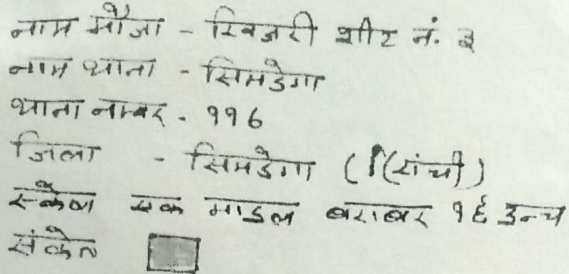 नाम मौजा - खिजरी शीट नं. ३
नाम थाना - सिमडेगा
थाना नम्बर - ११६
जिला - सिमडेगा (रांची)
स्केल एक माइल बराबर १६ इन्च
संकेत